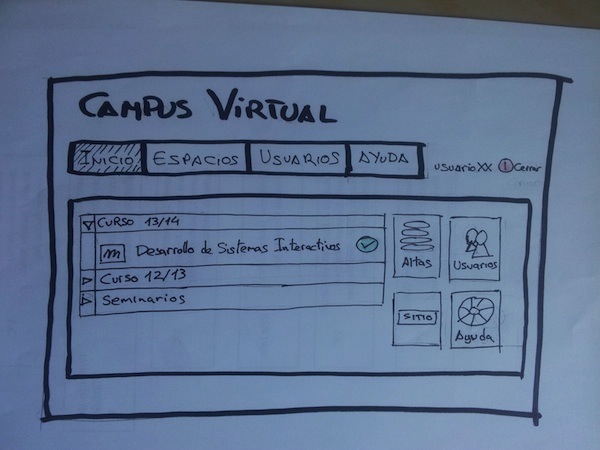 CAMPUS VIRTUAL
INICIO ESPACIOS USUARIOS AYUDA
USUARIO XX Cerrar
CURSO 13/14
m Desarrollo de Sistemas Interactivos
CURSO 12/13
Seminarios
Altas Usuarios
SITIO Ayuda